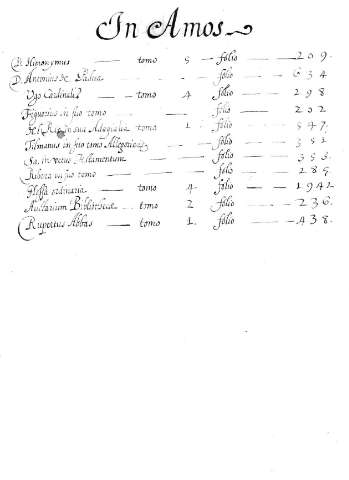 In Amos
D. Hieronymus tomo 5 folio 209.
D. Antonius de Padua folio 634
Ugo Cardinalis tomo 4 folio 298
in suo tomo folio 202
in sua tomo 1 folio 547.
Titmanus in suo tomo Allegoriae folio 351
Sa. in vetus Testamentum folio 353
Ribera in suo tomo folio 285
Glossa ordinaria tomo 4. folio 1942
Auctarium Bibliothecae tomo 2 folio 236.
Rupertus Abbas tomo 1. folio 438.